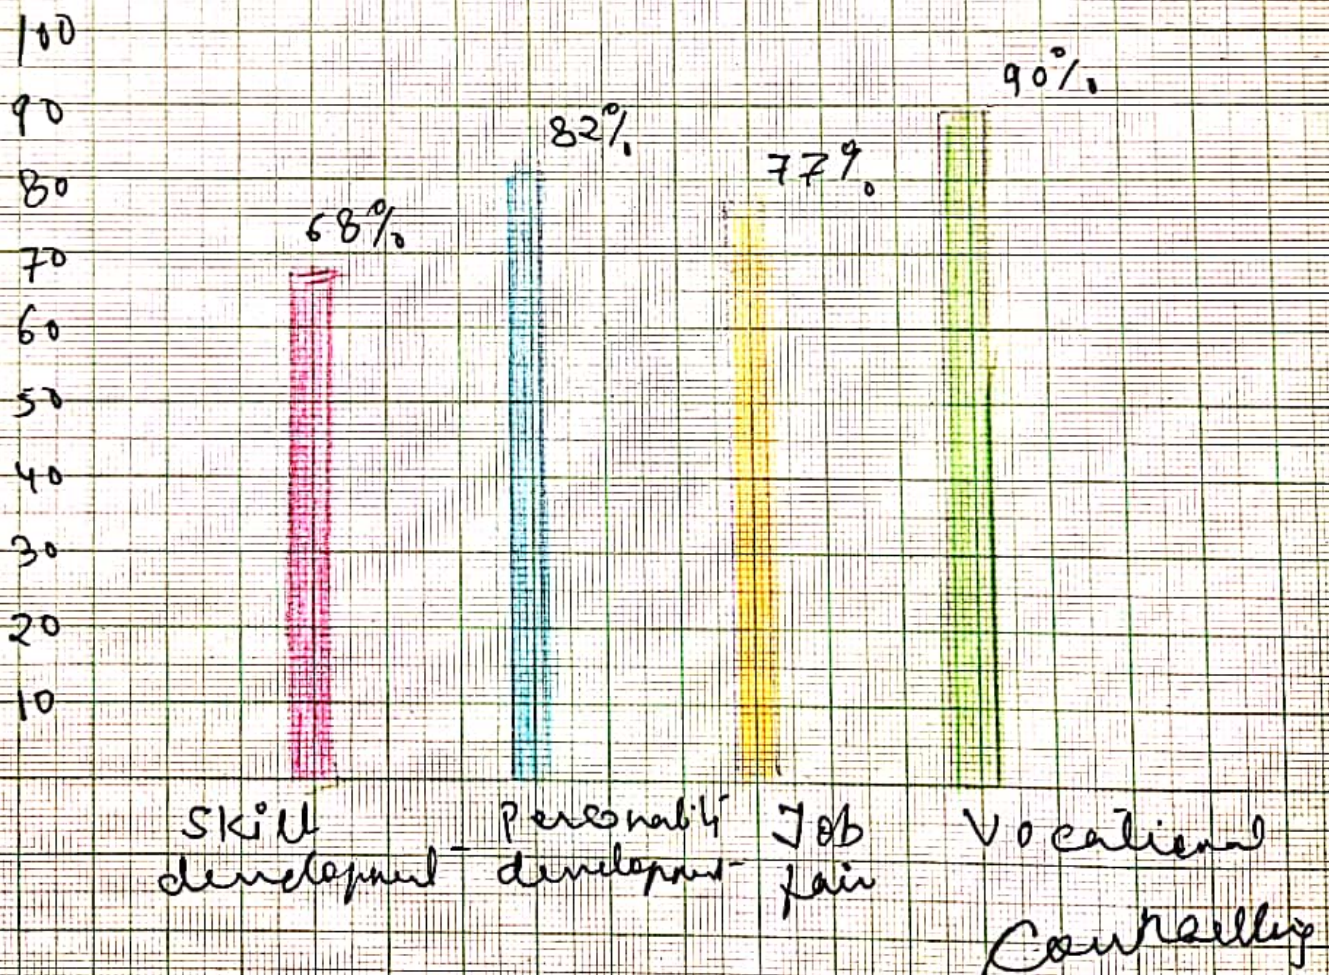 100
90%
90
82%
77%
80
68%
70
60
50
40
30
20
10
Skill development
Personaliti development
Job fair
Vocational Counselling